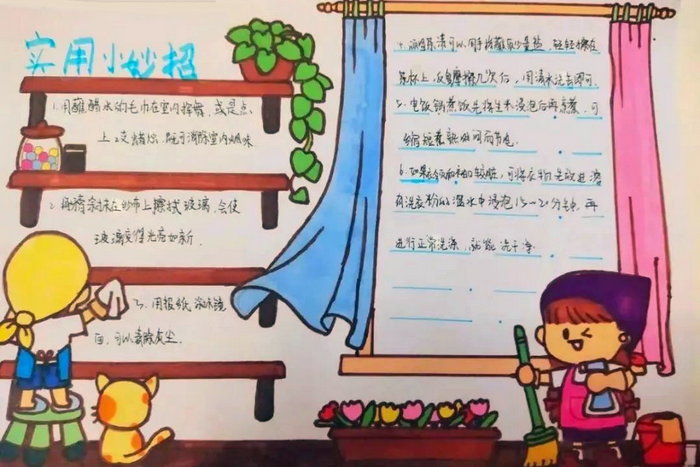 实用小妙招
1.用蘸醋水的毛巾在室内挥舞,或是点
上2支蜡烛,既可消除室内烟味
2.将 在纱布上擦拭玻璃,会使
玻璃变得光亮如新.
3.用报纸 擦
面,可以去除灰尘.
4. 可以用手指蘸取少量盐,轻轻擦在
杯上,反复摩擦几次后,用清水洗去即可.
5.电饭锅煮饭先将生米浸泡后再蒸煮,可
缩短煮 时间而节电.
6.如果衣领和袖口较脏,可将衣物先放进溶
有洗衣粉的温水中浸泡15—20分钟,再
进行正常洗涤,就能洗干净.